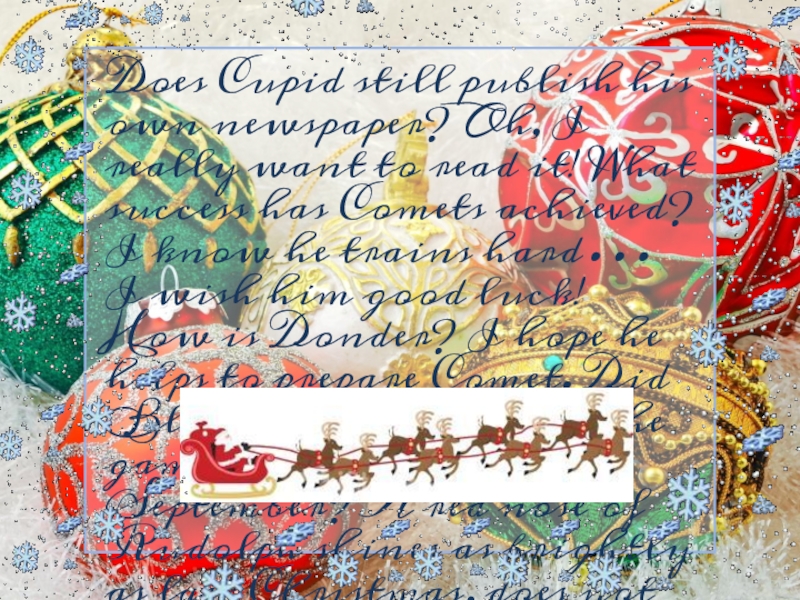 Does Cupid still publish his
own newspaper? Oh, I
really want to read it! What
success has Comets achieved?
I know he trains hard...
I wish him good luck!
How is Donder? I hope he
helps to prepare Comet. Did
September?
Rudolph shines as brightly
as last Christmas, does not